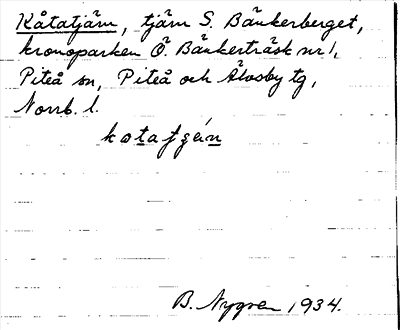 Kåtatjärn, tjärn S. Bänkerberget,
kronoparken Ö. Bänkerträsk nr 1,
Piteå sn, Piteå och Älvsby tg,
Norrb. l.
B. Nygren 1934.